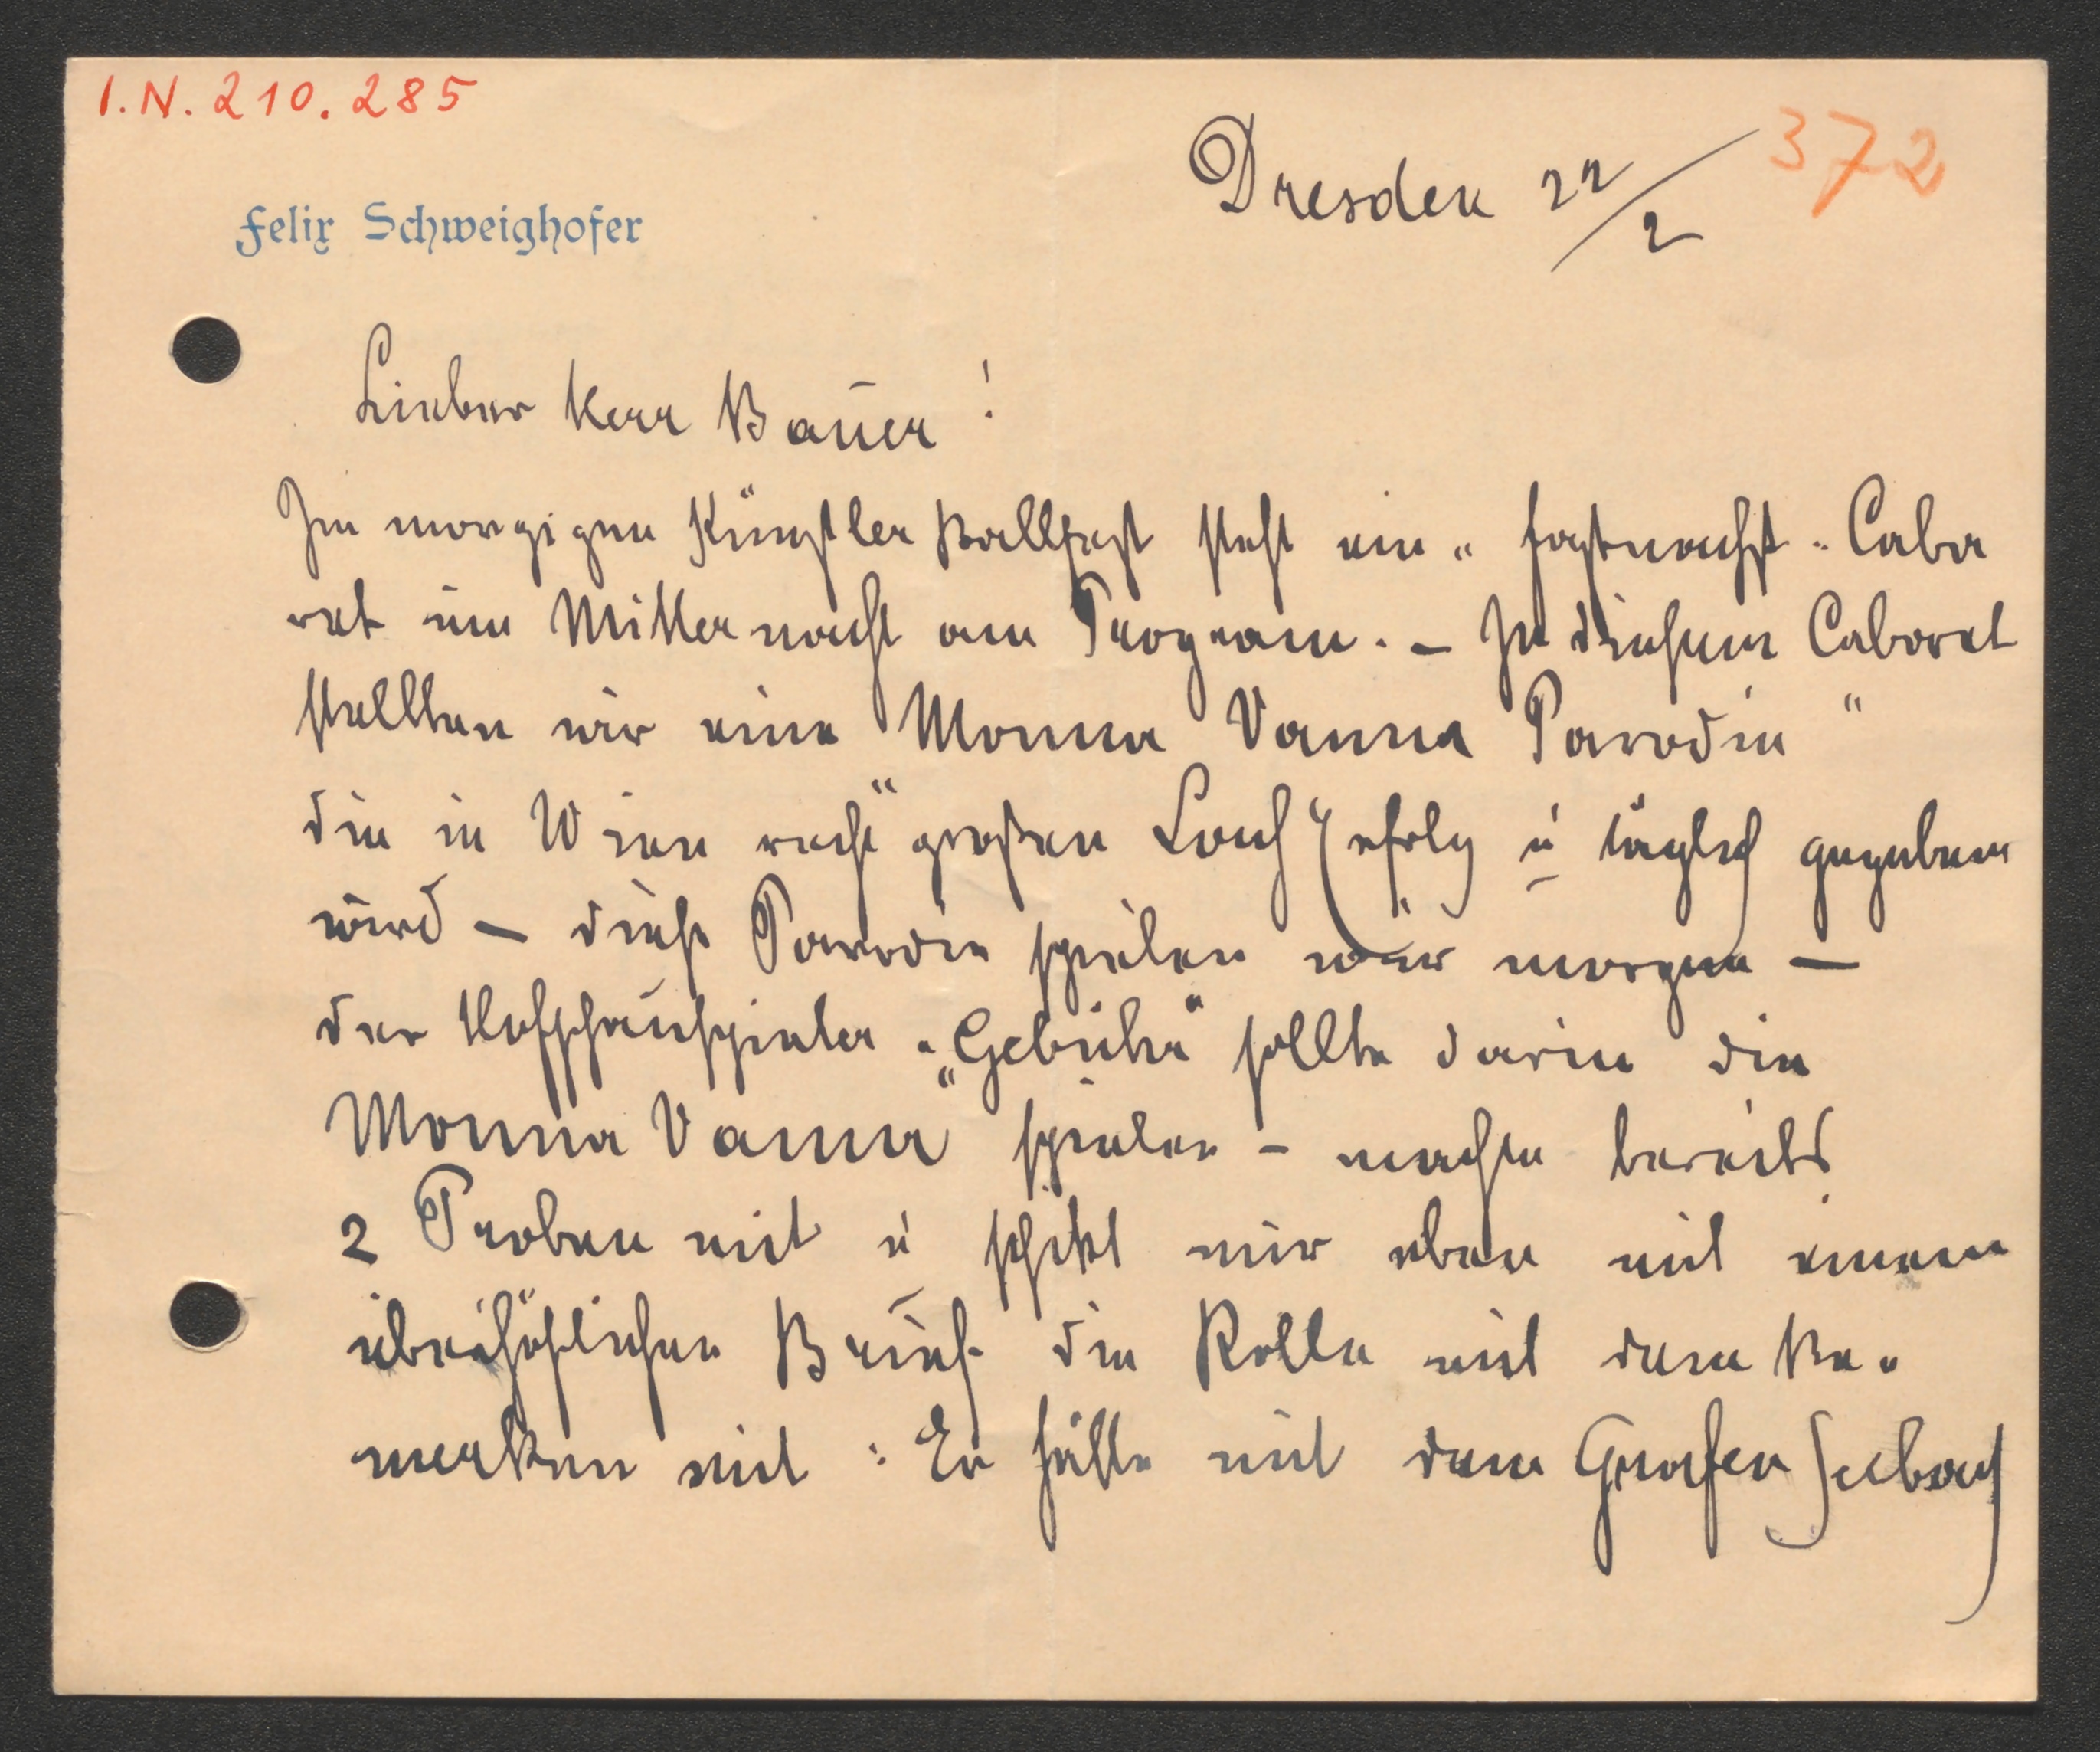 I.N.210.285
372
Felix Schweighofer
Dresden 22/2
Lieber Herr Bauer!
Im morgigen Künstler Ballfest steht ein „Fastnacht" Caba
ret um Mitternacht am Program. – In diesem Cabaret
stellten wir eine Monna Vanna Parodie"
die in Wien recht "großen Lach Erfolg u täglich gegeben
wird – diese Parodie spielen wir morgen –
der Hofschauspieler „Gebühr" sollte darin die
Monna Vanna" spielen – machte bereits
2 Proben mit u schikt mir eben mit einem
überhöflichen Brief die Rolle mit dem Be-
merken mit: Er hätte mit dem Grafen Seebach